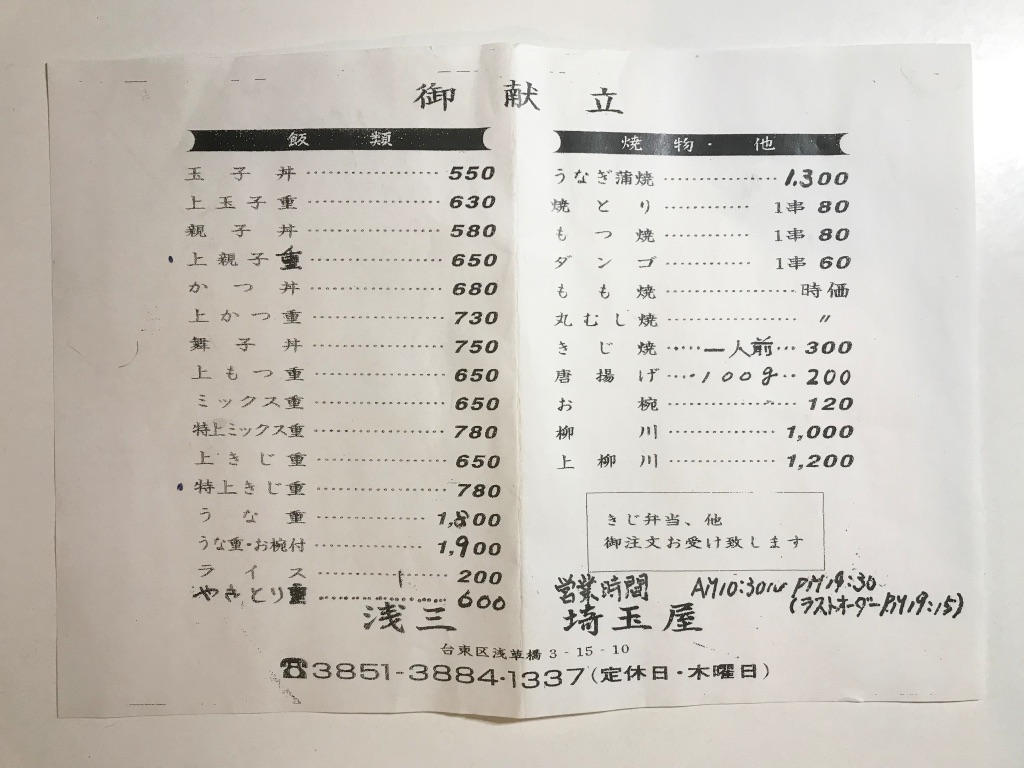 御献立
飯類
玉子丼 550
上玉子重 630
親子丼 580
上親子重 650
かつ丼 680
上かつ重 730
舞子丼 750
上もつ重 650
ミックス重 650
特上ミックス重 780
上きじ重 650
特上きじ重 780
うな重 1,800
うな重・お椀付 1,900
ライス 200
やきとり重 600
焼物・他
うなぎ蒲焼 1,300
焼とり 1串 80
もつ焼 1串 80
ダンゴ 1串 60
もも焼 時価
丸むし焼 〃
きじ焼 一人前 300
唐揚げ 100g 200
お椀 120
柳川 1,000
上柳川 1,200
きじ弁当、他
御注文お受け致します
営業時間 AM10:30〜PM19:30
(ラストオーダーPM19:15)
浅三 埼玉屋
台東区浅草橋3-15-10
☎3851-3884・1337(定休日・木曜日)